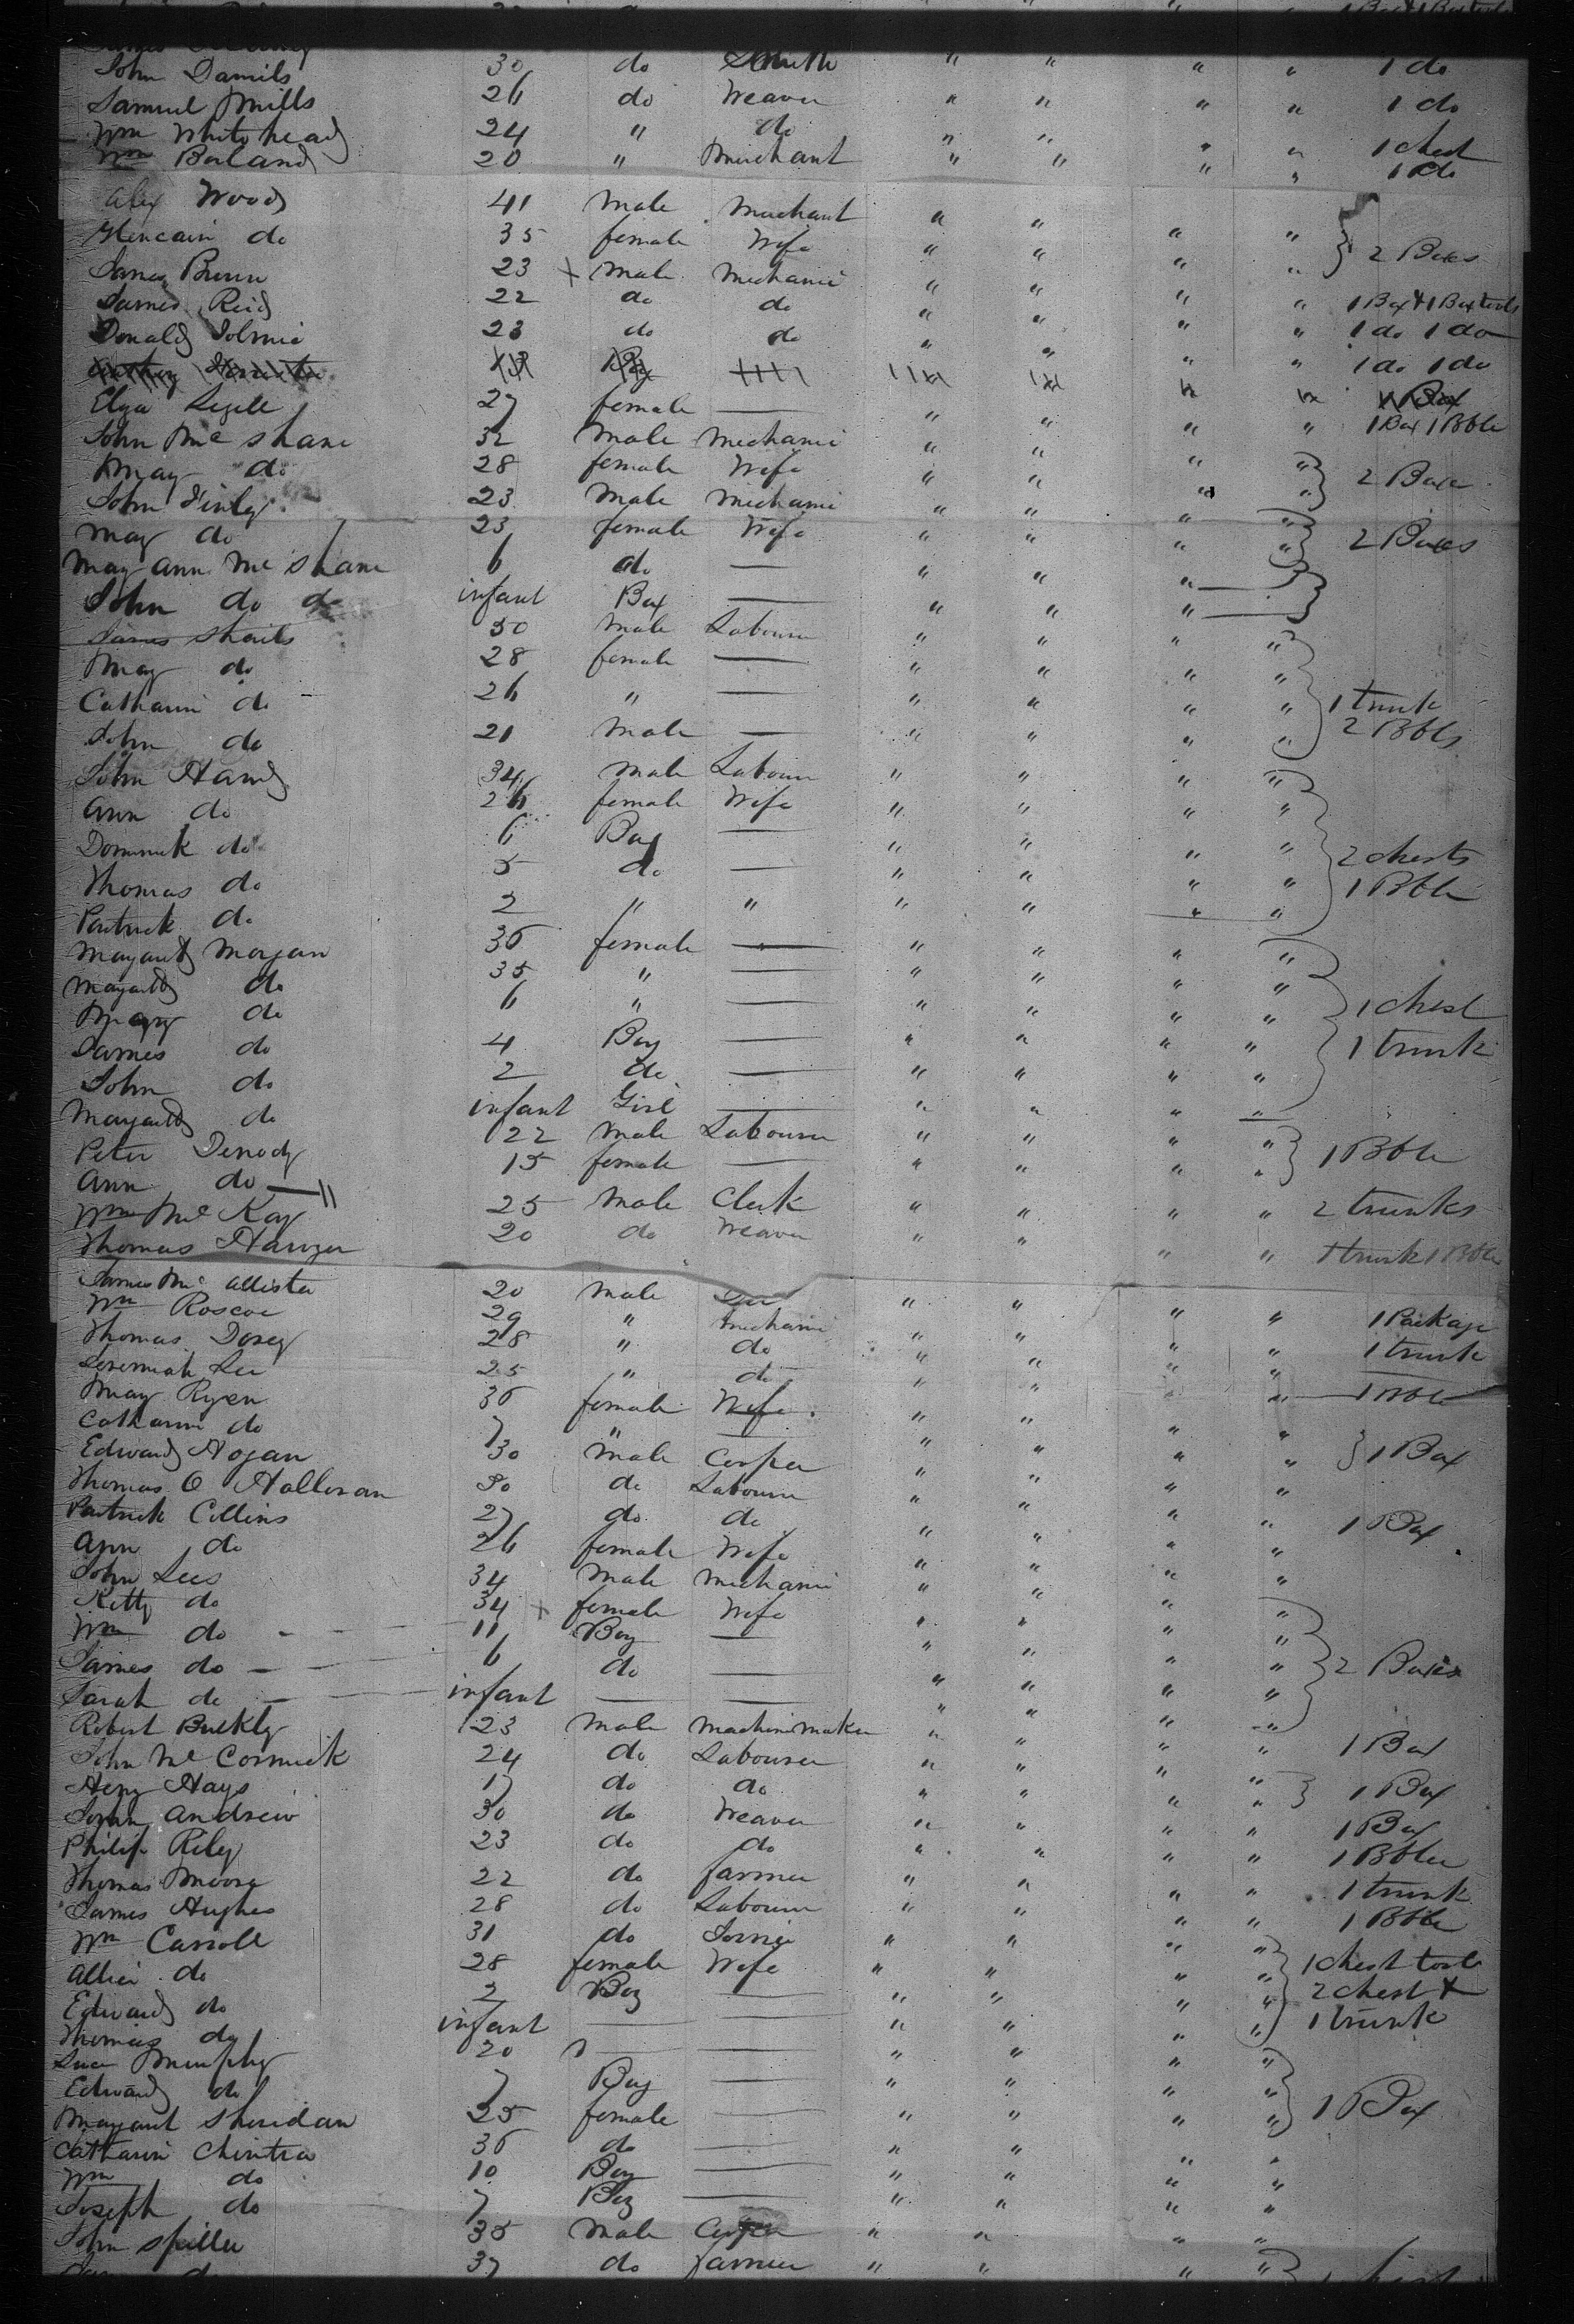 John Daniels 30 do Smith " " " " 1 do
Samuel Mills 26 do Weaver " " " " 1 do
Wm Whitehead 24 " do " " " " 1 chest
Wm Borland 20 " Merchant " " " " 1 do
Alex Wood 41 Male Merchant " " " "
Glencairn do 35 female Wife " " " " 2 Boxes
James Brown 23 Male Mechanic " " " "
James Reid 22 do do " " " " 1 Box & 1 Box tools
Donald 23 do do " " " " 1 do 1 do
1 do 1 do
Eliza 27 female — " " " " 1 Box 1 Bble
John Mc Shane 32 Male Mechanic " " " "
Mary do 28 female Wife " " " " 2 Boxes
John Finly 23 Male Mechanic " " " "
Mary do 23 female Wife " " " " 2 Boxes
Mary Ann Mc Shane 6 do — " " "
John do do infant Boy — " " "
James Shails 30 Male Labourer " " " "
Mary do 28 female — " " " "
Catharine do 26 " — " " " " 1 trunk
John do 21 Male — " " " " 2 Bbls
John Hand 34 Male Labourer " " " "
Ann do 26 female Wife " " " "
Dominick do 6 Boy — " " " " 2 chests
Thomas do 5 do — " " " " 1 Bble
Patrick do 2 " " " " " "
Margaret Morgan 36 female — " " " "
Margaret do 35 " — " " " "
Mary do 6 " — " " " " 1 chest
James do 4 Boy — " " " " 1 trunk
John do 2 do — " " " "
Margaret do infant Girl — " " " "
Peter 22 Male Labourer " " " "
Ann do 15 female — " " " " 1 Bble
Wm Mc Kay 25 Male Clerk " " " " 2 trunks
Thomas 20 do Weaver " " " " 1 trunk 1 Bble
James Mc Allister 20 Male " " " "
Wm Roscoe 29 " Mechanic " " " " 1 Package
Thomas Dorey 28 " do " " " " 1 trunk
Jeremiah Lee 25 " do " " " " 1 Bble
Mary Ryan 36 female Wife " " " "
Catharine do 7 " — " " " " 1 Box
Edward Hogan 30 Male Cooper " " " "
Thomas O Holloran 30 do Labourer " " " "
Patrick Collins 27 do do " " " " 1 Box
Ann do 26 female Wife " " " "
John Lees 34 Male Mechanic " " " "
Kitty do 34 female Wife " " " "
Wm do 11 Boy — " " " "
James do 6 do — " " " " 2 Boxes
Sarah do infant — — " " " "
Robert Bulkly 23 Male Machine Maker " " " " 1 Box
John Mc Cormick 24 do Labourer " " " "
Henry Hays 17 do do " " " " 1 Box
John Andrew 30 do Weaver " " " " 1 Box
Philip Riley 23 do do " " " " 1 Bble
Thomas Moore 22 do farmer " " " " 1 trunk
James Hughes 28 do Labourer " " " " 1 Bble
Wm Carroll 31 do " " " " 1 chest tools
Allice do 28 female Wife " " " " 2 chest &
Edward do 2 Boy — " " " " 1 trunk
Thomas do infant — — " " " "
Murphy 20 — " " " "
Edward do 7 Boy — " " " "
Margaret Sheridan 25 female — " " " " 1 Box
Catharine 36 do — " " " "
Wm do 10 Boy — " " " "
Joseph do 7 Boy — " " " "
John Spiller 35 Male Cooper " " " "
37 do farmer " " " "